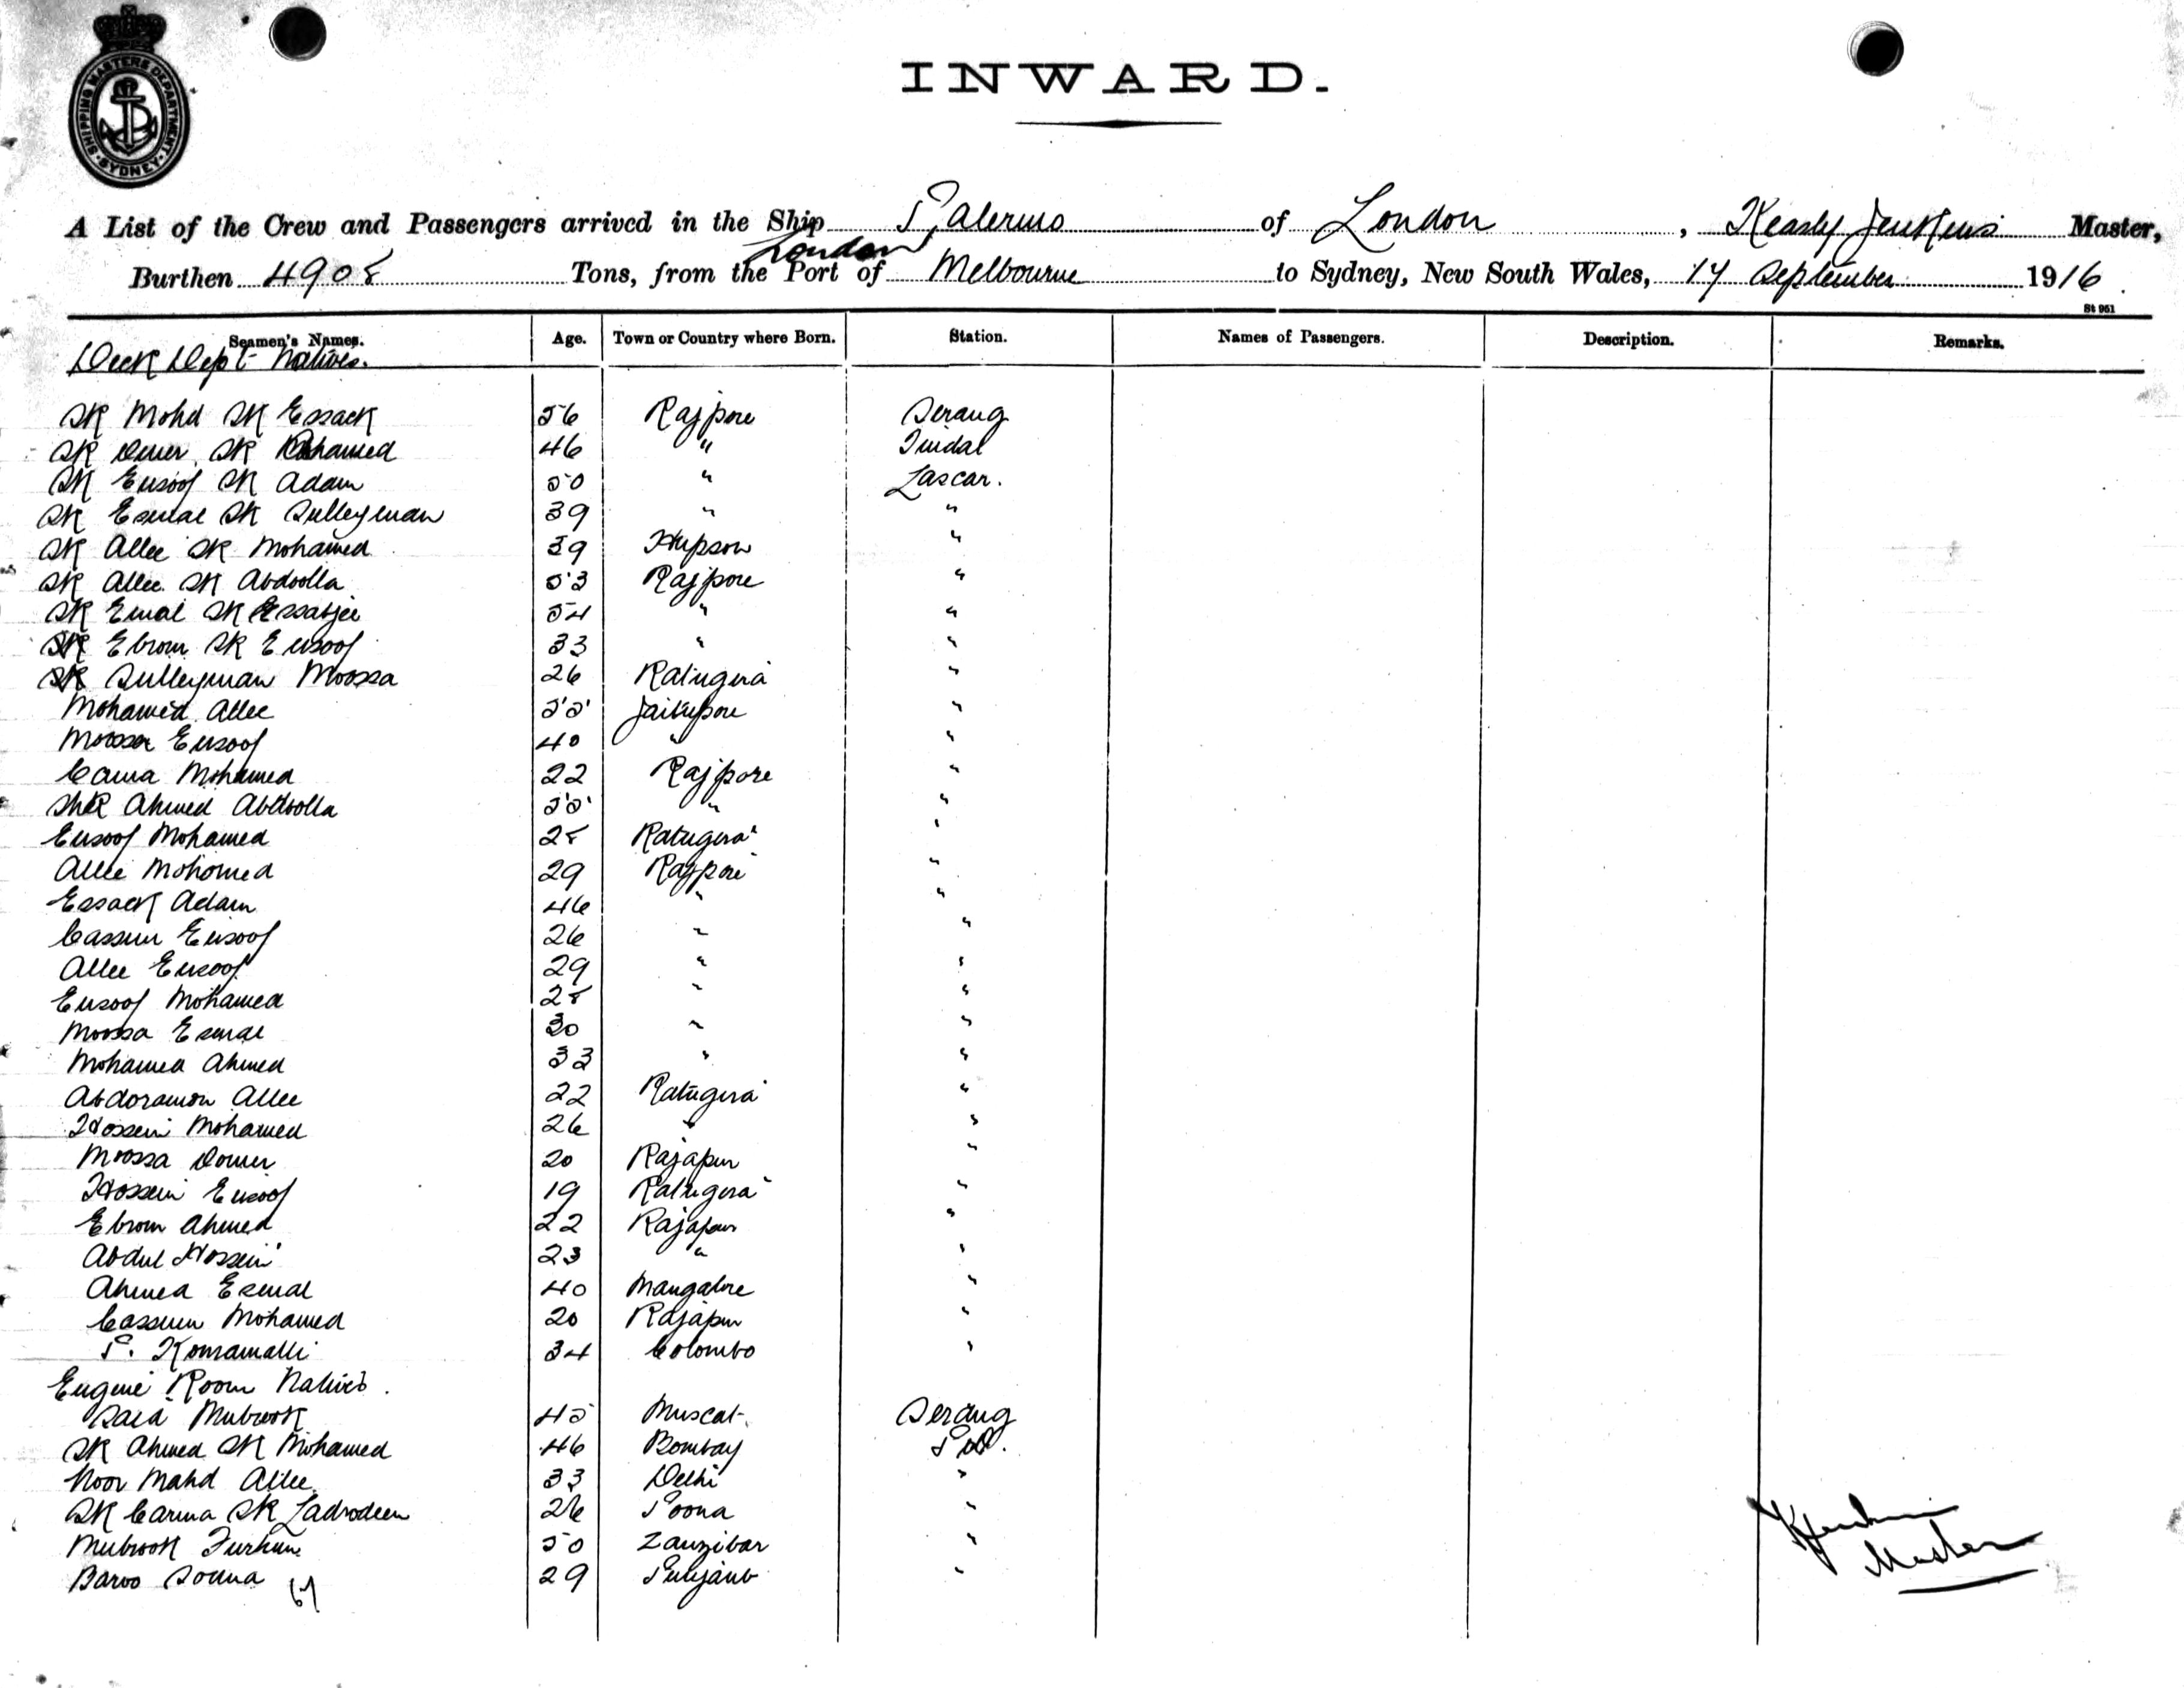 SHIPPING MASTERS DEPARTMENT SYDNEY
INWARD.
A List of the Crew and Passengers arrived in the Ship Palermo of London, Jenkins Master,
London
Burthen 4908 Tons, from the Port of Melbourne to Sydney, New South Wales, 14 September 1916
St 951
Seamen's Names. Age. Town or Country where Born. Station. Names of Passengers. Description. Remarks.
Deck Dept Natives.
SK Mohd SK Essack 56 Rajpore Serang
SK Omer SK Mohamed 46 " Tindal
SK Eusoof SK Adam 50 " Lascar.
SK Esmal SK Sulleyman 39 " "
SK Allee SK Mohamed 39 "
SK Allee SK Abdoolla 53 Rajpore "
SK Emal SK Essabjee 54 " "
SK Ebrom SK Eusoof 33 " "
SK Sulleyman Moossa 26 Ratugera "
Mohamed Allee 55 "
Moossa Eusoof 40 " "
Cama Mohamed 22 Rajpore "
Shk Ahmed Abdoolla 55 " "
Eusoof Mohamed 28 Ratugera "
Allee Mohomed 29 Rajpore "
Essack Adam 46 " "
Cassum Eusoof 26 " "
Allee Eusoof 29 " "
Eusoof Mohamed 28 " "
Moossa Esmal 30 " "
Mohamed Ahmed 33 " "
Abdoramon Allee 22 Ratugera "
Hossein Mohamed 26 " "
Moossa Oomer 20 Rajapur "
Hossein Eusoof 19 Ratugera "
Ebrom Ahmed 22 Rajapur "
Abdul Hossein 23 " "
Ahmed Esmal 40 Mangalore "
Cassum Mohamed 20 Rajapur "
P. 34 Colombo "
Engine Room Natives.
Mubrook 45 Muscat Serang
SK Ahmed SK Mohamed 46 Bombay
Noor Mahd Allee 33 Delhi "
SK Carma SK Ladrodeen 26 Poona "
Mubrook Furhan 50 Zanzibar "
Baroo 29 Punjaub "
Master